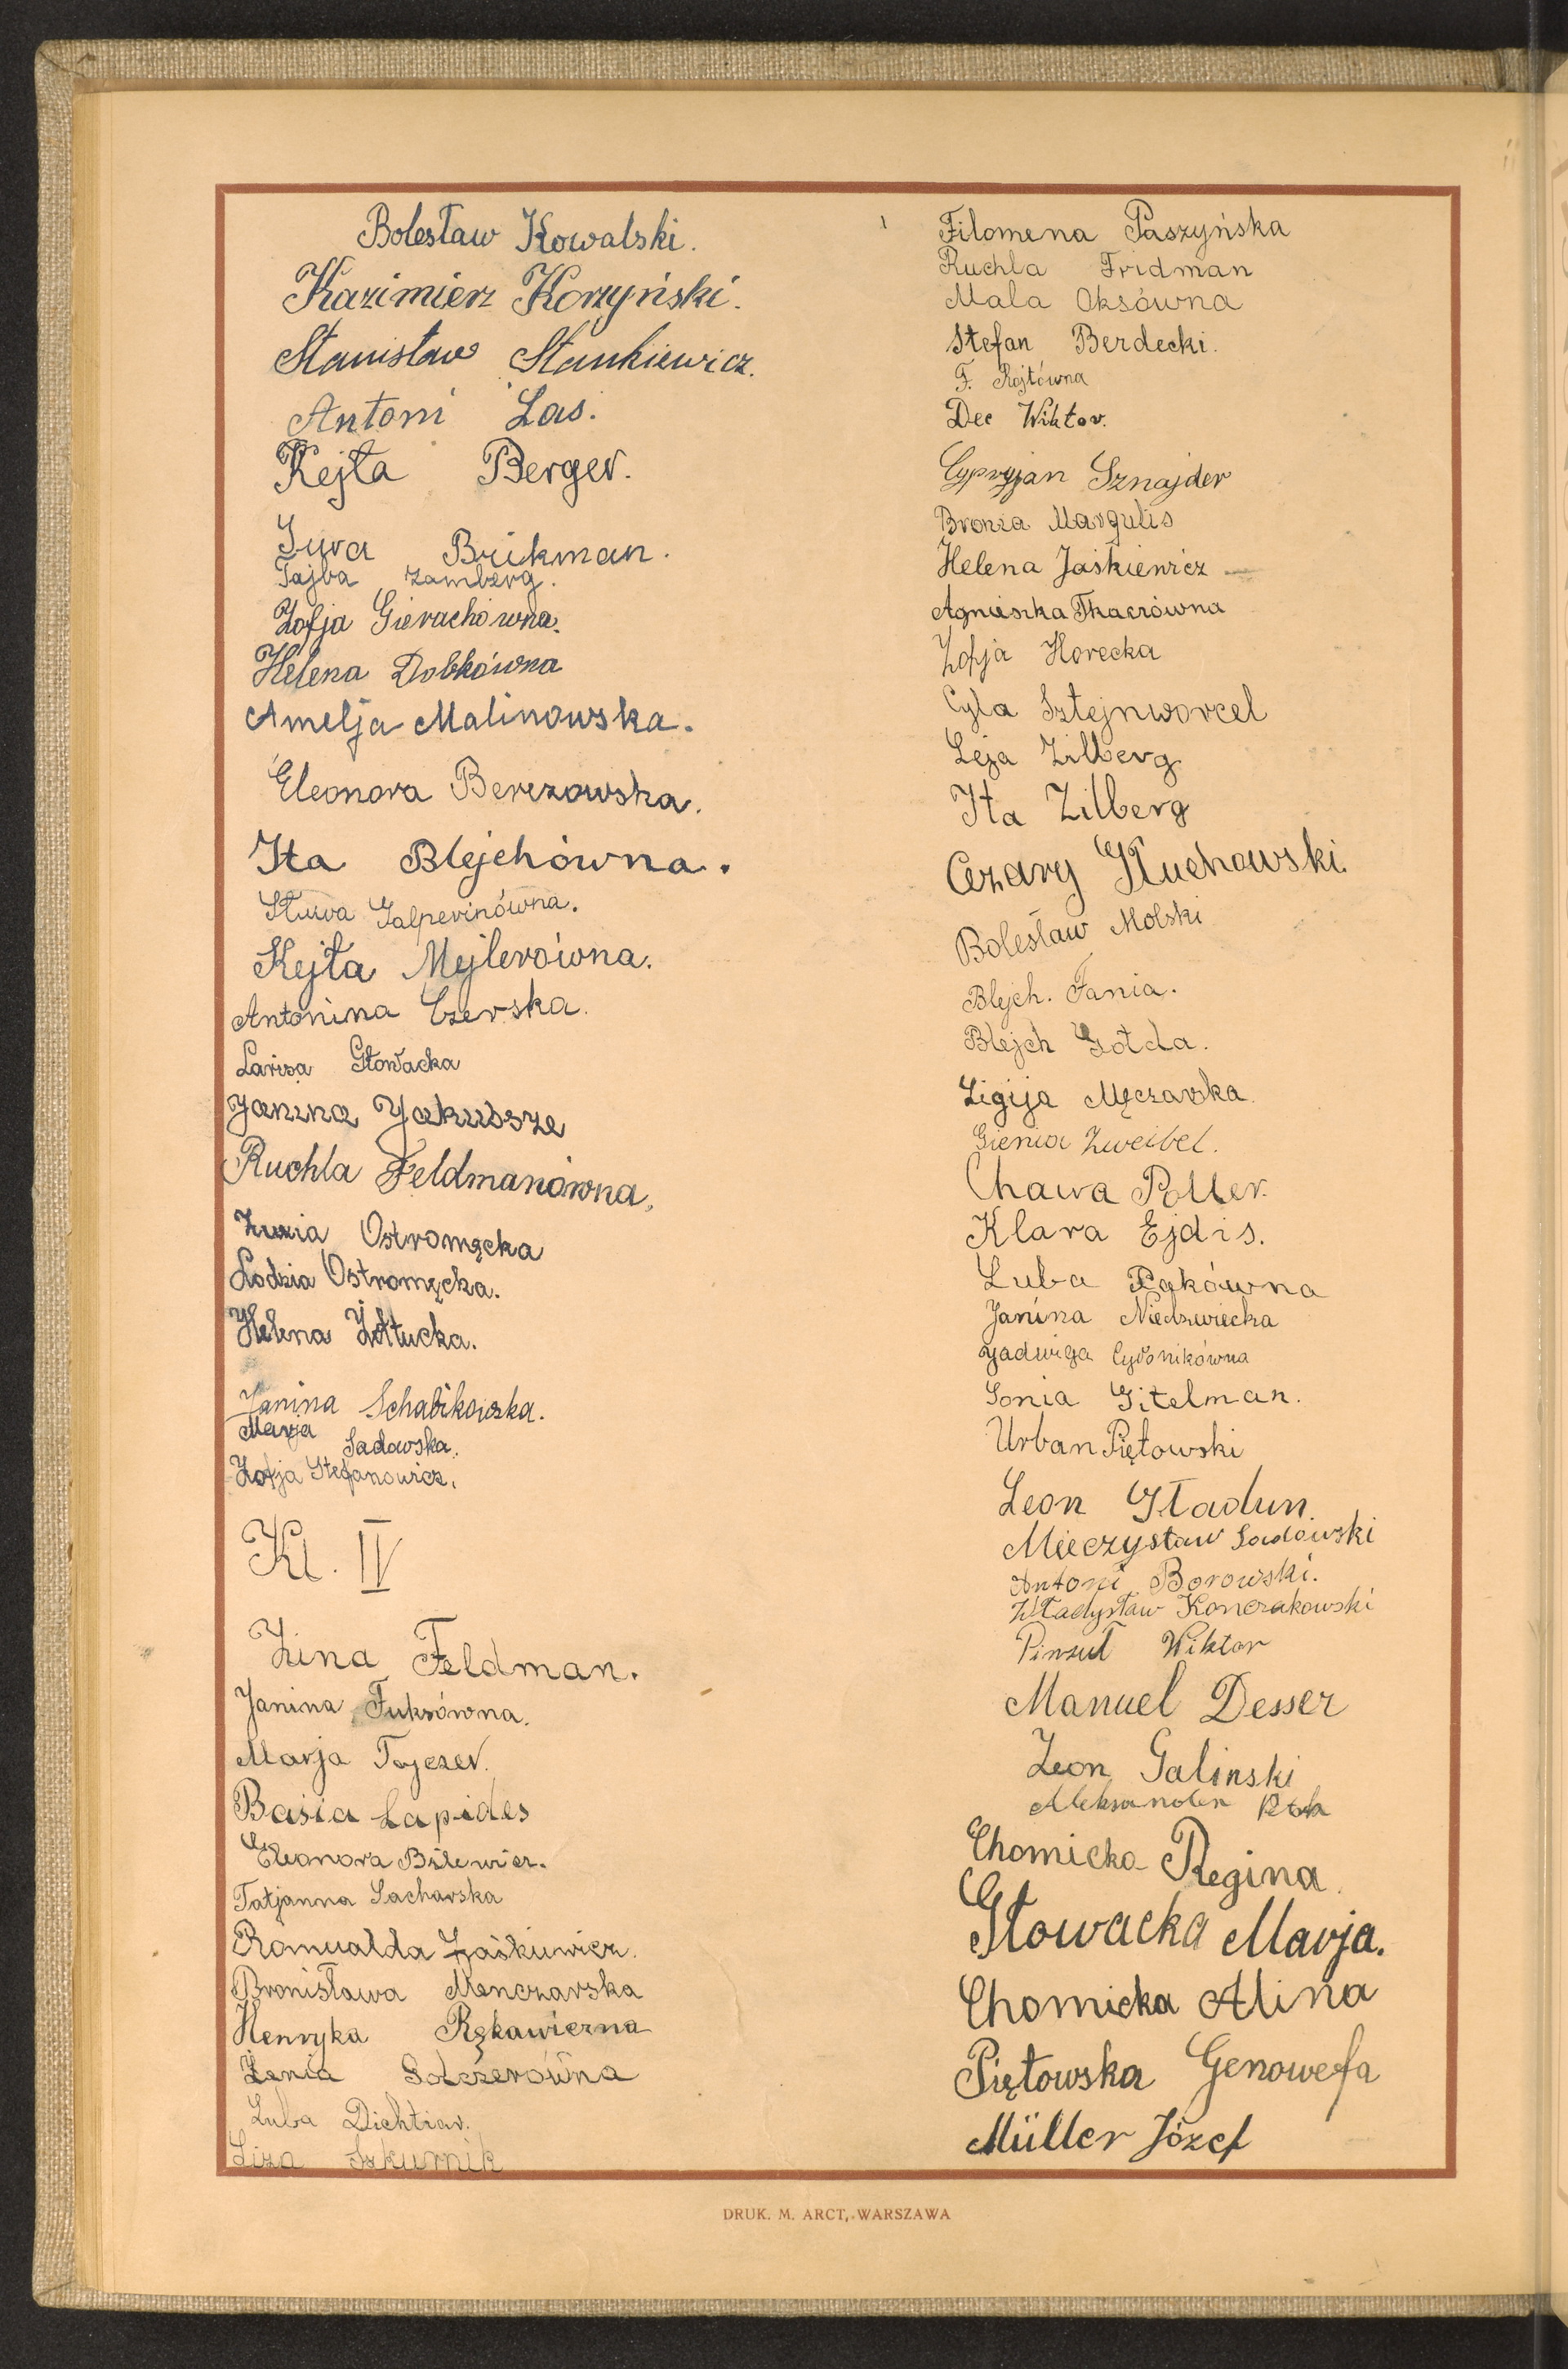 Bolesław Kowalski.
Kazimierz Korzyński.
Stanisław Stankiewicz.
Antoni Las.
Kejta Berger.
Sura Brikman.
Tajba Zamberg.
Zofja Gierachówna.
Helena Dobkówna
Amelja Malinowska.
Eleonora Berezowska.
Ita Blejchówna.
Galperinówna.
Kejta Mejlerówna.
Antonina Czerska.
Larisa Głowacka
Janina Jakubsze
Ruchla Feldmanówna,
Zuzia Ostromęcka
Lodzia Ostromęcka.
Helena Żółtucka.
Janina Schabikowska.
Marja Sadowska.
Zofja Stefanowicz.
Kl. IV
Zina Feldman.
Janina Fuksówna.
Marja Tajczer.
Basia Lapides
Eleonora Bilewicz.
Tatjanna Sacharska
Romualda Jaśkiewicz.
Bronisława Menczarska
Henryka Rękawiczna
Żenia Golczerówna
Luba Dichtiar.
Liza Szkurnik
Filomena Paszyńska
Ruchla Fridman
Mala Oksówna
Stefan Berdecki.
F. Rojtówna
Dec Wiktor.
Cypryjan Sznajder
Bronia Margulis
Helena Jaśkiewicz
Agnieszka Tkaczówna
Zofja Horecka
Cyla Sztejnworcel
Leja Zilberg
Ita Zilberg
Cezary Głuchowski.
Bolesław Molski
Blejch. Fania.
Blejch Gołda.
Ligija Męczarska.
Gienia Zweibel.
Chawa Poller.
Klara Ejdis.
Luba Pąkówna
Janina Niedzwiecka
Jadwiga Cybonikówna
Sonia Gitelman.
Urban Piętowski
Leon Gładun.
Mieczysław Sadowski
Antoni Borowski.
Władysław Konczakowski
Pinzuł Wiktor
Manuel Desser
Leon Galinski
Aleksander
Chomicka Regina.
Głowacka Marja.
Chomicka Alina
Piętowska Genowefa
Müller Józef
DRUK. M. ARCT, WARSZAWA